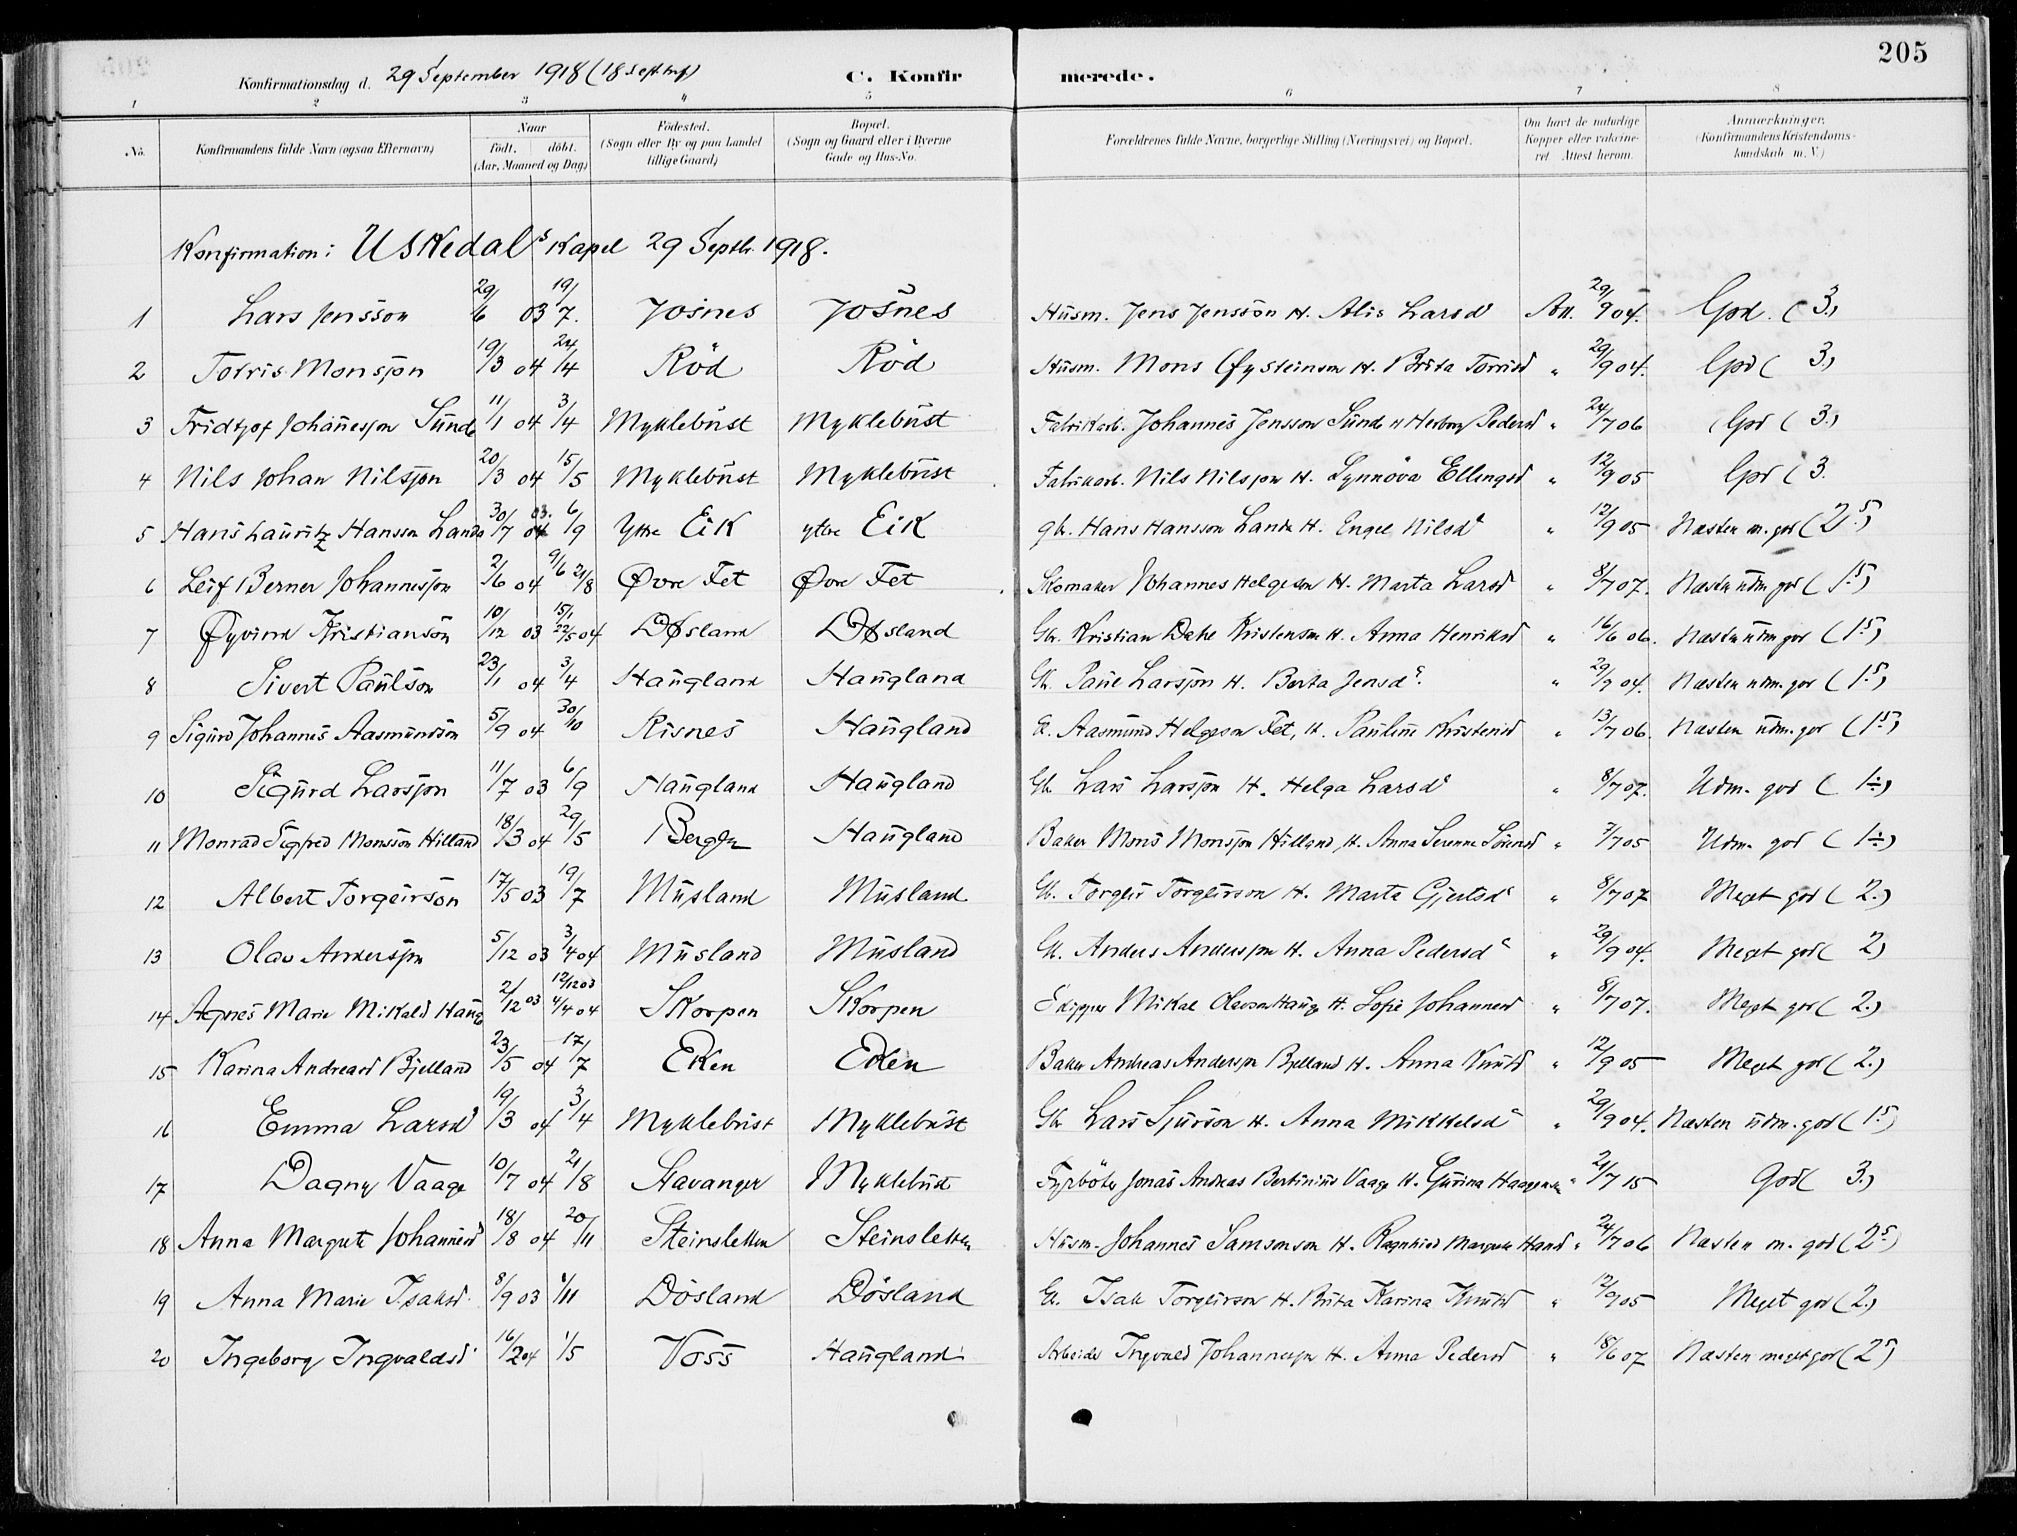 205
Konfirmationsdag d. 29 September 1918 (18 Septtrf) C. Konfirmerede.
1 2 3 4 5 6 7 8
No. Konfirmandens fulde Navn (ogsaa Efternavn) Naar født. døbt. (Aar, Maaned og Dag) Fødested. (Sogn eller By og paa Landet tillige Gaard) Bopæl. (Sogn og Gaard eller i Byerne Gade og Hus-No. Forældrenes fulde Navne, borgerlige Stilling (Næringsvei) og Bopæl. Om havt de naturlige Kopper eller vakcineret. Attest herom. Anmærkninger. (Konfirmandens Kristendomskundskab m. V.)
Konfirmation i Uskedals Kapel 29 Septbr. 1918.
1 Lars Jensson 29/6 03 19/7. Josnes Josnes Husm. Jens Jensson H. Alis Larsd Att. 29/9 04. God. (3.)
2 Torris Monsson 19/3 04 24/4 Röd Röd Husm. Mons Øysteinson H. Brita Torrisd " 29/9 04. God (3.)
3 Fridtjof Johannesson Sunde 11/1 04 3/4 Myklebust Myklebust Fabrikarb. Johannes Jensson Sunde H Herborg Pedersd " 24/7 06 God (3.)
4 Nils Johan Nilsson 20/3 04 15/5 Myklebust Myklebust Fabrikarb. Nils Nilsson H. Synnöva Ellingsd " 12/9 05 God (3.
5 Hans Lauritz Hansson Lande 30/7 03. 04 6/9 Ytre Eik ytre Eik gbr. Hans Hansson Lande H. Engel Nilsd " 12/9 05 Næsten m. god (2.5)
6 Leif Berner Johannesson 2/6 04 9/6 21/8 Øvre Fet Øvre Fet Skomaker Johannes Helgeson H. Marta Larsd " 8/7 07. Næsten udm god (1.5)
7 Øyvind Kristianson 10/12 03 15/1 22/5 04 Døsland Døsland Gbr. Kristian Dahl Kristenson H. Anna Henriksd " 16/6 06. Næsten udm god (1.5)
8 Sivert Paulson 23/1 04 3/4 Haugland Haugland Gb. Paul Larsson H. Berta Jensd. " 29/9 04. Næsten udm. god (1.5)
9 Sigurd Johannes Aasmundson 5/9 04 30/10 Risnes Haugland G. Aasmund Helgeson Fet, H. Pauline Kristensd " 13/7 06. Næsten udm. god (1.5)
10 Sigurd Larsson 11/7 03 6/9 Haugland Haugland Gb. Lars Larsson H. Helga Larsd " 8/7 07. Udm. god (1÷)
11 Monrad Sigfred Monsson Hilland 18/3 04 29/5 Bergen Haugland Baker Mons Monsson Hilland H. Anna Serenne Sörensd " 7/7 05 Udm. god (1÷)
12 Albert Torgeirson 17/5 03 19/7 Musland Musland Gb. Torgeir Torgeirson H. Marta Gjertsd " 8/7 07 Meget god (2.)
13 Olav Andersson 5/12 03 3/4 04 Musland Musland Gb. Anders Andersson H. Anna Pedersd " 29/9 04. Meget god (2)
14 Agnes Marie Mikalsd Haug 2/12 03 12/12 03 4/4 04 Skorpen Skorpen Skipper Mikal Olavson Haug H. Sofie Johannesd " 8/7 07. Meget god (2.)
15 Karina Andreasd Bjelland 23/5 04 17/7 Eken Eken Baker Andreas Andersson Bjelland H. Anna Knutsd " 12/9 05 Meget god (2.)
16 Emma Larsd 19/3 04 3/4 Myklebust Myklebust Gb Lars Sjurson H. Anna Mikkelsd " 29/9 04. Næsten udm. god (1.5)
17 Dagny Vaage 10/7 04 21/8 Stavanger Myklebust Fyrböter Jonas Andreas Bertinius Vaage H. Gurina Haagensen " 21/7 15 God (3.)
18 Anna Margrete Johannesd 18/8 04 20/11 Steinsletten Steinsletten Husm. Johannes Samsonson H. Ragnhild Margrete Hansd " 24/7 06 Næsten m. god (2.5)
19 Anna Marie Isaksd. 8/9 03 1/11 Dösland Dösland G. Isak Torgeirson H. Brita Karina Knutsd " 12/9 05 Meget god (2.)
20 Ingeborg Ingvaldsd 16/2 04 1/5 Voss Haugland Arbeider Ingvald Johannesson H. Anna Pedersd " 18/6 07 Næsten meget god (2.5)